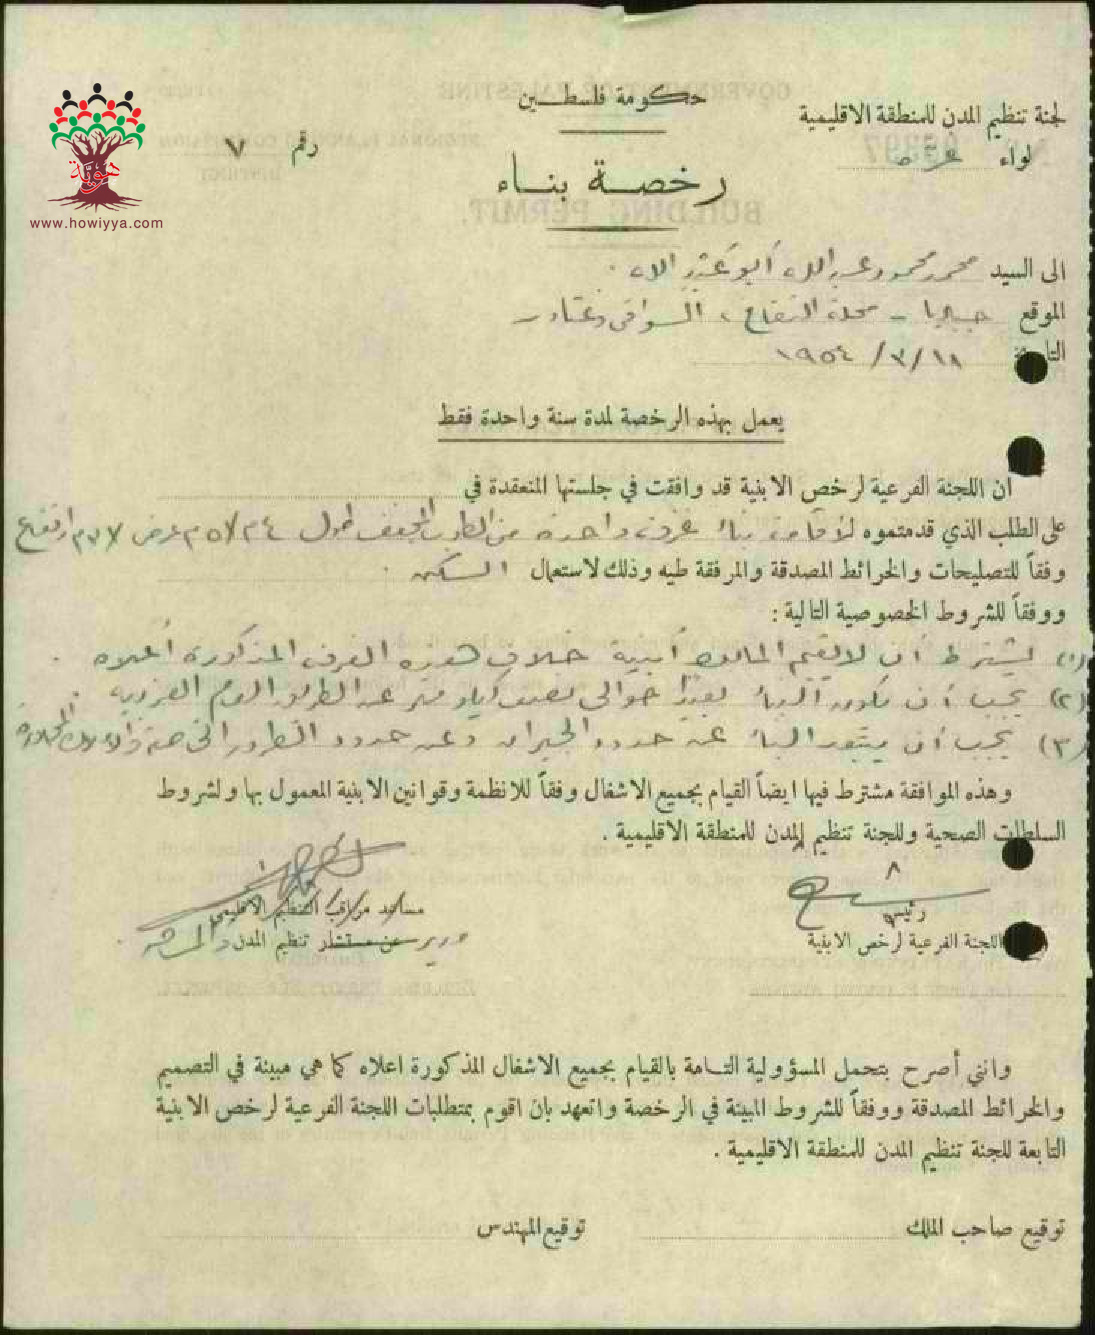 حكومة فلسطين
لجنة تنظيم المدن للمنطقة الاقليمية
لواء غزة
رقم ٧
هوية
www.howiyya.com
رخصة بناء
الى السيد محمد محمود عبد الله أبو
الموقع جباليا - محلة التفاح ،
التاريخ ١٨/٣/١٩٥٤
يعمل بهذه الرخصة لمدة سنة واحدة فقط
ان اللجنة الفرعية لرخص الابنية قد وافقت في جلستها المنعقدة في
على الطلب الذي قدمتموه لأقامة بناء غرفة واحدة من الطوب المجفف طول عرض ارتفاع
وفقاً للتصليحات والخرائط المصدقة والمرفقة طيه وذلك لاستعمال السكن .
ووفقاً للشروط الخصوصية التالية :
(١) يشترط أن لا يقيم المالك أبنية خلاف هذه الغرف المذكورة أعلاه .
(٢) يجب أن يكون البناء بعيداً حوالي نصف كيلو متر عن الطريق العام الغربية .
(٣) يجب أن يبتعد البناء عن حدود الجيران وعن حدود الطريق
وهذه الموافقة مشترط فيها ايضاً القيام بجميع الاشغال وفقاً للانظمة وقوانين الابنية المعمول بها ولشروط
السلطات الصحية وللجنة تنظيم المدن للمنطقة الاقليمية .
رئيس
اللجنة الفرعية لرخص الابنية
مساعد مراقب التنظيم الاقليمي
مدير عن مستشار تنظيم المدن
وانني أصرح بتحمل المسؤولية التامة بالقيام بجميع الاشغال المذكورة اعلاه كما هي مبينة في التصميم
والخرائط المصدقة ووفقاً للشروط المبينة في الرخصة واتعهد بان اقوم بمتطلبات اللجنة الفرعية لرخص الابنية
التابعة للجنة تنظيم المدن للمنطقة الاقليمية .
توقيع صاحب الملك
توقيع المهندس